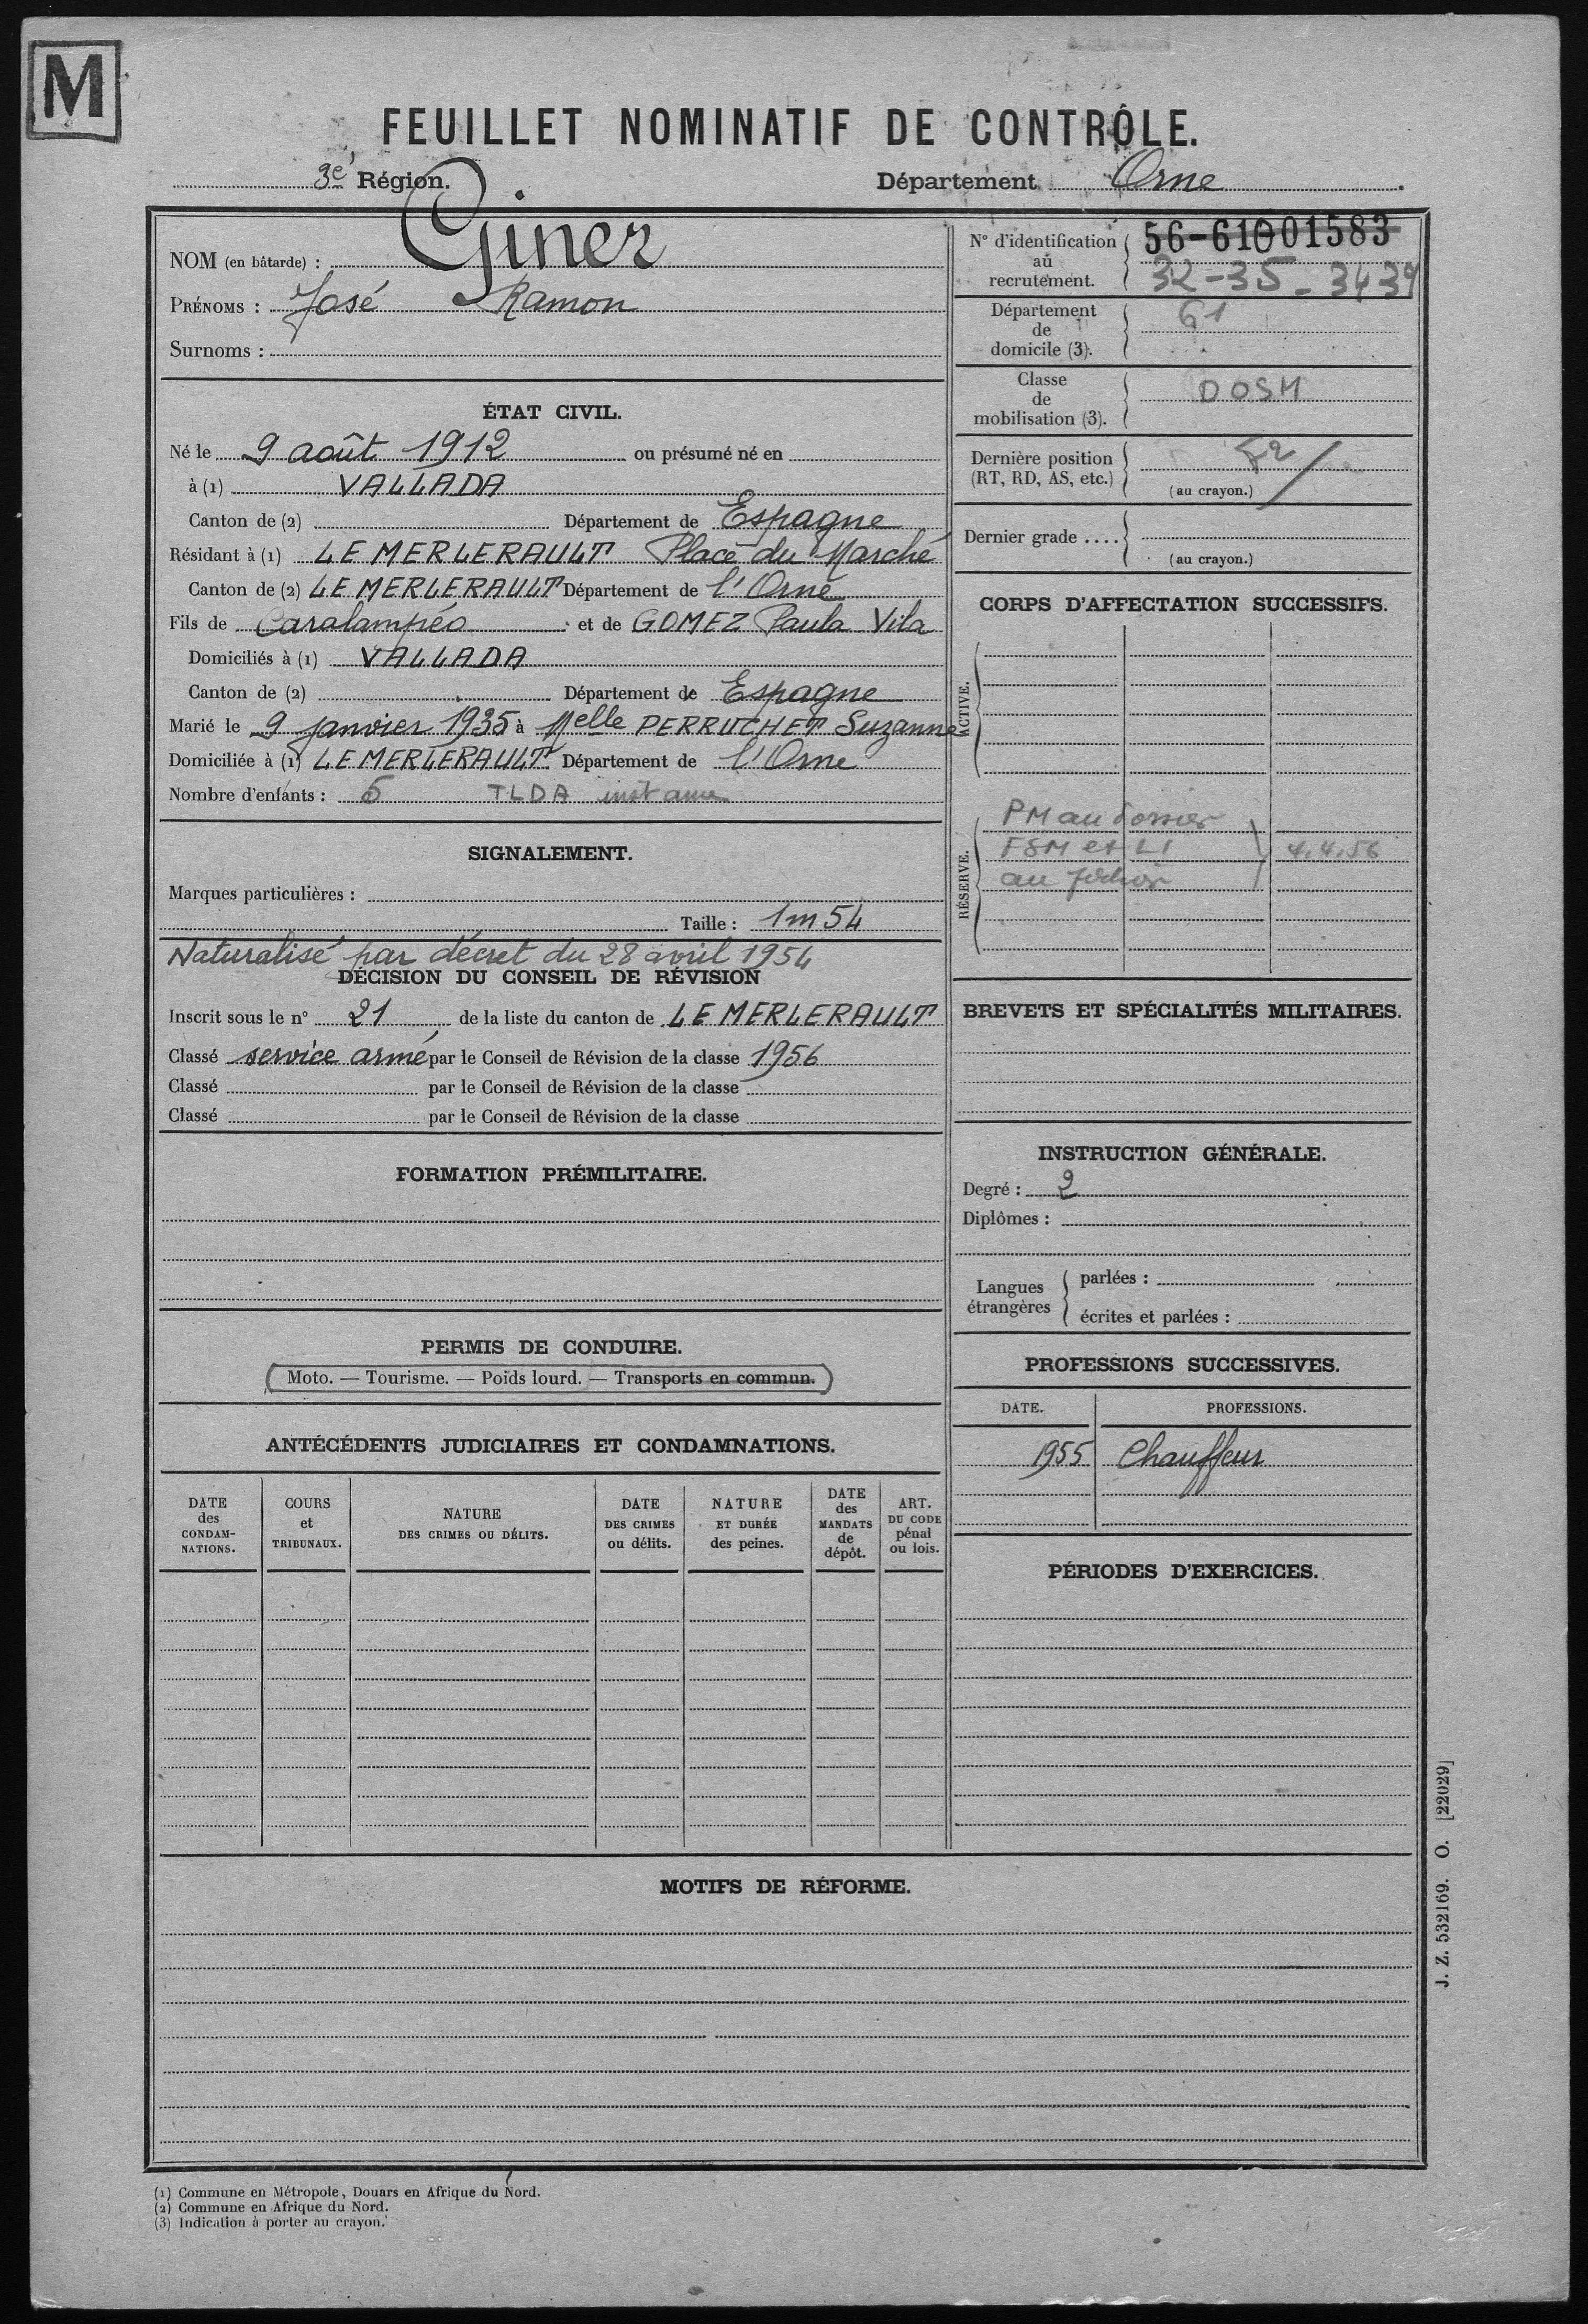 M
FEUILLET NOMINATIF DE CONTRÔLE.
3e Région.
Département Orne.
NOM (en bâtarde) : Giner
PRÉNOMS : José Ramon
Surnoms :
ÉTAT CIVIL.
Né le 9 août 1912 ou présumé né en
à (1) VALLADA
Canton de (2) Département de Espagne
Résidant à (1) LE MERLERAULT Place du Marché
Canton de (2) LE MERLERAULT Département de l'Orne
Fils de Caralampéo et de GOMEZ Paula Vila
Domiciliés à (1) VALLADA
Canton de (2) Département de Espagne
Marié le 9 janvier 1935 à Melle PERRUCHET Suzanne
Domiciliée à (1) LE MERLERAULT Département de l'Orne
Nombre d'enfants : 5 TLDA
SIGNALEMENT.
Marques particulières :
Taille : 1m54
Naturalisé par décret du 28 avril 1954
DÉCISION DU CONSEIL DE RÉVISION
Inscrit sous le n° 21 de la liste du canton de LE MERLERAULT
Classé service armé par le Conseil de Révision de la classe 1956
Classé par le Conseil de Révision de la classe
Classé par le Conseil de Révision de la classe
FORMATION PRÉMILITAIRE.
PERMIS DE CONDUIRE.
(Moto. — Tourisme. — Poids lourd. — Transports en commun.)
ANTÉCÉDENTS JUDICIAIRES ET CONDAMNATIONS.
DATE des CONDAM-NATIONS.
COURS et TRIBUNAUX.
NATURE DES CRIMES OU DÉLITS.
DATE DES CRIMES ou délits.
NATURE ET DURÉE des peines.
DATE des MANDATS de dépôt.
ART. DU CODE pénal ou lois.
N° d'identification au recrutement. 56-61001583
32-35-3439
Département de domicile (3). 61
Classe de mobilisation (3). DOSM
Dernière position (RT, RD, AS, etc.) 52
(au crayon.)
Dernier grade ....
(au crayon.)
CORPS D'AFFECTATION SUCCESSIFS.
ACTIVE.
RÉSERVE.
PM au dossier
FSM et LI 4.4.56
au
BREVETS ET SPÉCIALITÉS MILITAIRES.
INSTRUCTION GÉNÉRALE.
Degré : 2
Diplômes :
Langues étrangères
parlées :
écrites et parlées :
PROFESSIONS SUCCESSIVES.
DATE. PROFESSIONS.
1955 Chauffeur
PÉRIODES D'EXERCICES.
MOTIFS DE RÉFORME.
J. Z. 532169. O. [22029]
(1) Commune en Métropole, Douars en Afrique du Nord.
(2) Commune en Afrique du Nord.
(3) Indication à porter au crayon.